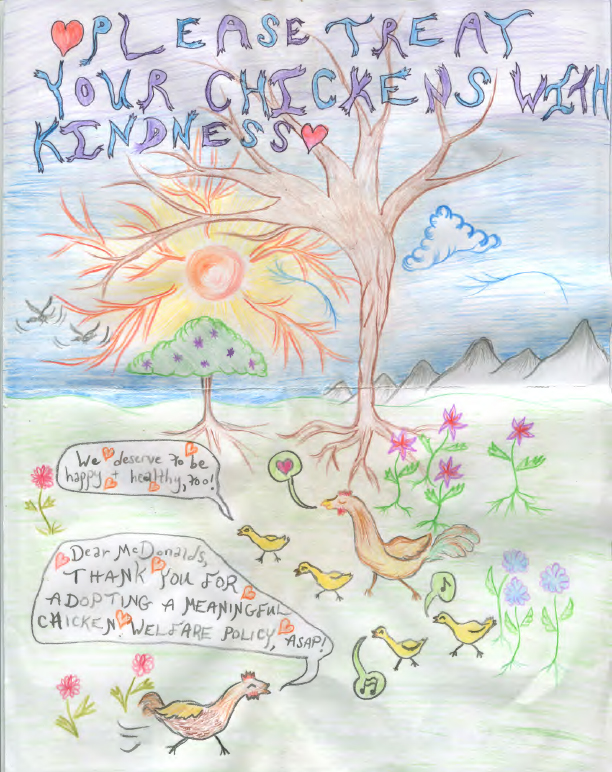 PLEASE TREAT
YOUR CHICKENS WITH
KINDNESS
We deserve to be
happy + healthy, too!
Dear McDonalds,
THANK YOU FOR
ADOPTING A MEANINGFUL
CHICKEN WELFARE POLICY, ASAP!